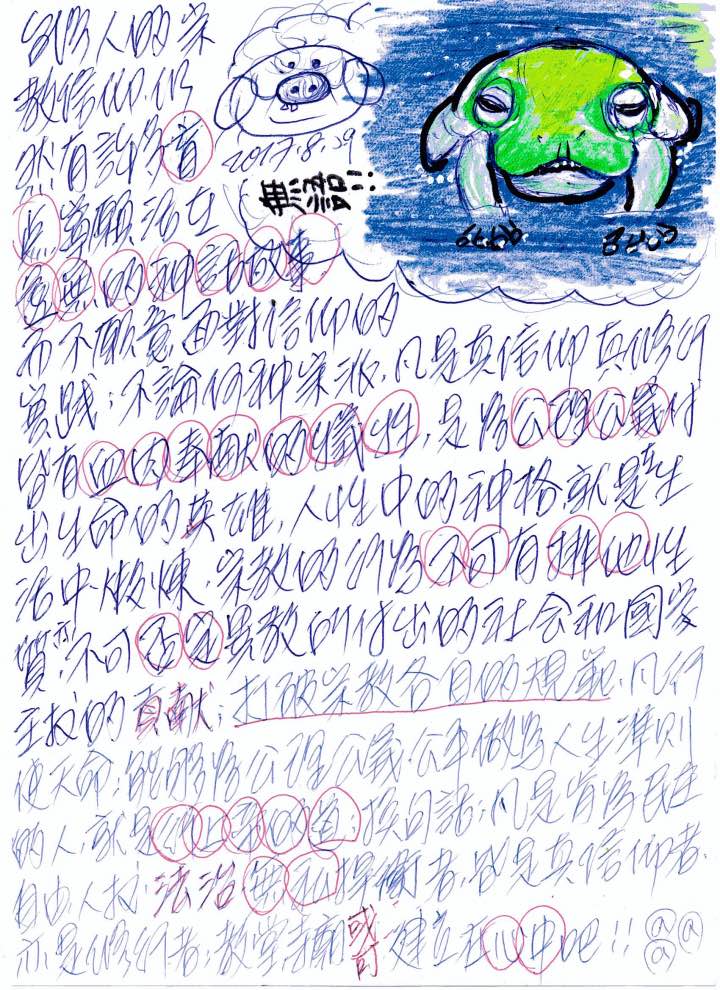 台灣人的宗
教信仰,仍
然有許多盲
點,寧願活在
虛無的神話故事
2017.8.29
而不願意面對信仰的
實踐;不論何种宗派,凡是真信仰真修行
皆有血肉奉献的犧牲,是為公理公義付
出生命的英雄,人性中的神格就是在生
活中做煉,宗教的行為不可有排他性
質,亦不可否定異教的付出的社会和國家
主权的貢献;打破宗教各自的規範,凡行
使天命,能夠為公理公義公平做為人生準則
的人,就是的道,換句話;凡是肯為民主
自由,人权,法治,無私捍衛者,就是真信仰者,
亦是修行者,教堂寺廟或可建立在心中吧!!